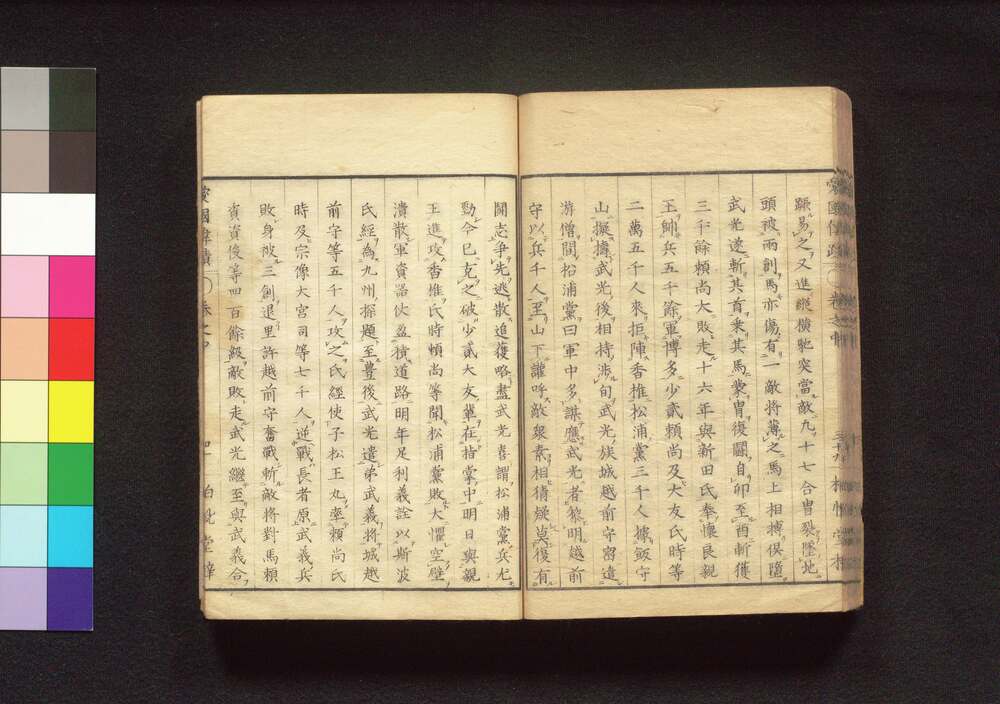 騙易之又進縱橫馳突當敵九十七合冑裂墜地
頭被兩創馬亦傷有一敵將薄之馬上相搏俱墮
武光遂斬其首乘其馬蒙冑復鬪自卯至酉斬獲
三千餘頼尚大敗走十六年與新田氏奉懷良親
王帥兵五千餘軍博多少貳頼尚及大友氏時等
二萬五千人來拒陣香推松浦黨三千人據飯守
山擬擣武光後相持涉旬武光族城越前守密遣
游僧間松浦黨曰軍中多謀應武光者黎明越前
守以兵千人至山下讙呼敵衆素相猜疑莫復有
鬪志爭先逃散追復略盡武光喜謂松浦黨兵尤
勁今已克之破少貳大友輩在指掌中明日與親
王進攻香推氏時頼尚等聞松浦黨敗大懼空壁
潰散軍資器仗盈積道路明年足利義詮以斯波
氏經為九州探題至豊後武光遣弟武義將城越
前守等五千人攻之氏經使子松王丸率頼尚氏
時及宗像大宮司等七千人逆戰長者原武義兵
敗身被三創退里許越前守奮戰斬敵將對馬頼
資資俊等四百餘級敵敗走武光繼至與武義合
愛國偉績 卷之